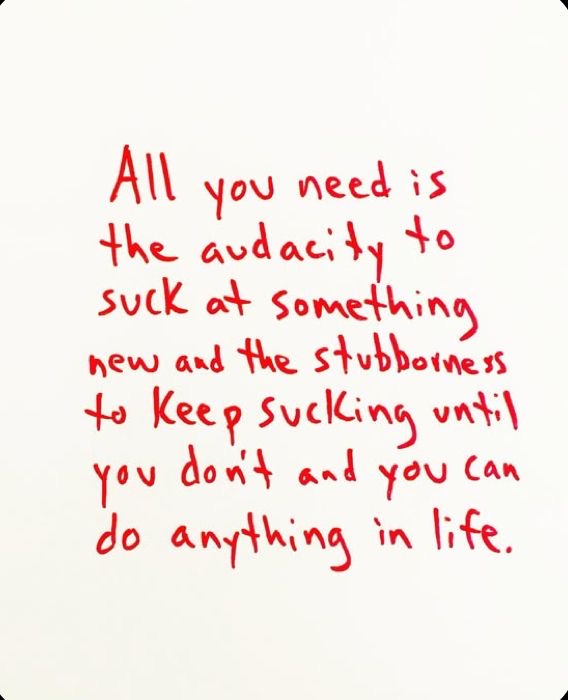 All you need is
the audacity to
suck at something
new and the stubborness
to keep sucking until
you don't and you can
do anything in life.